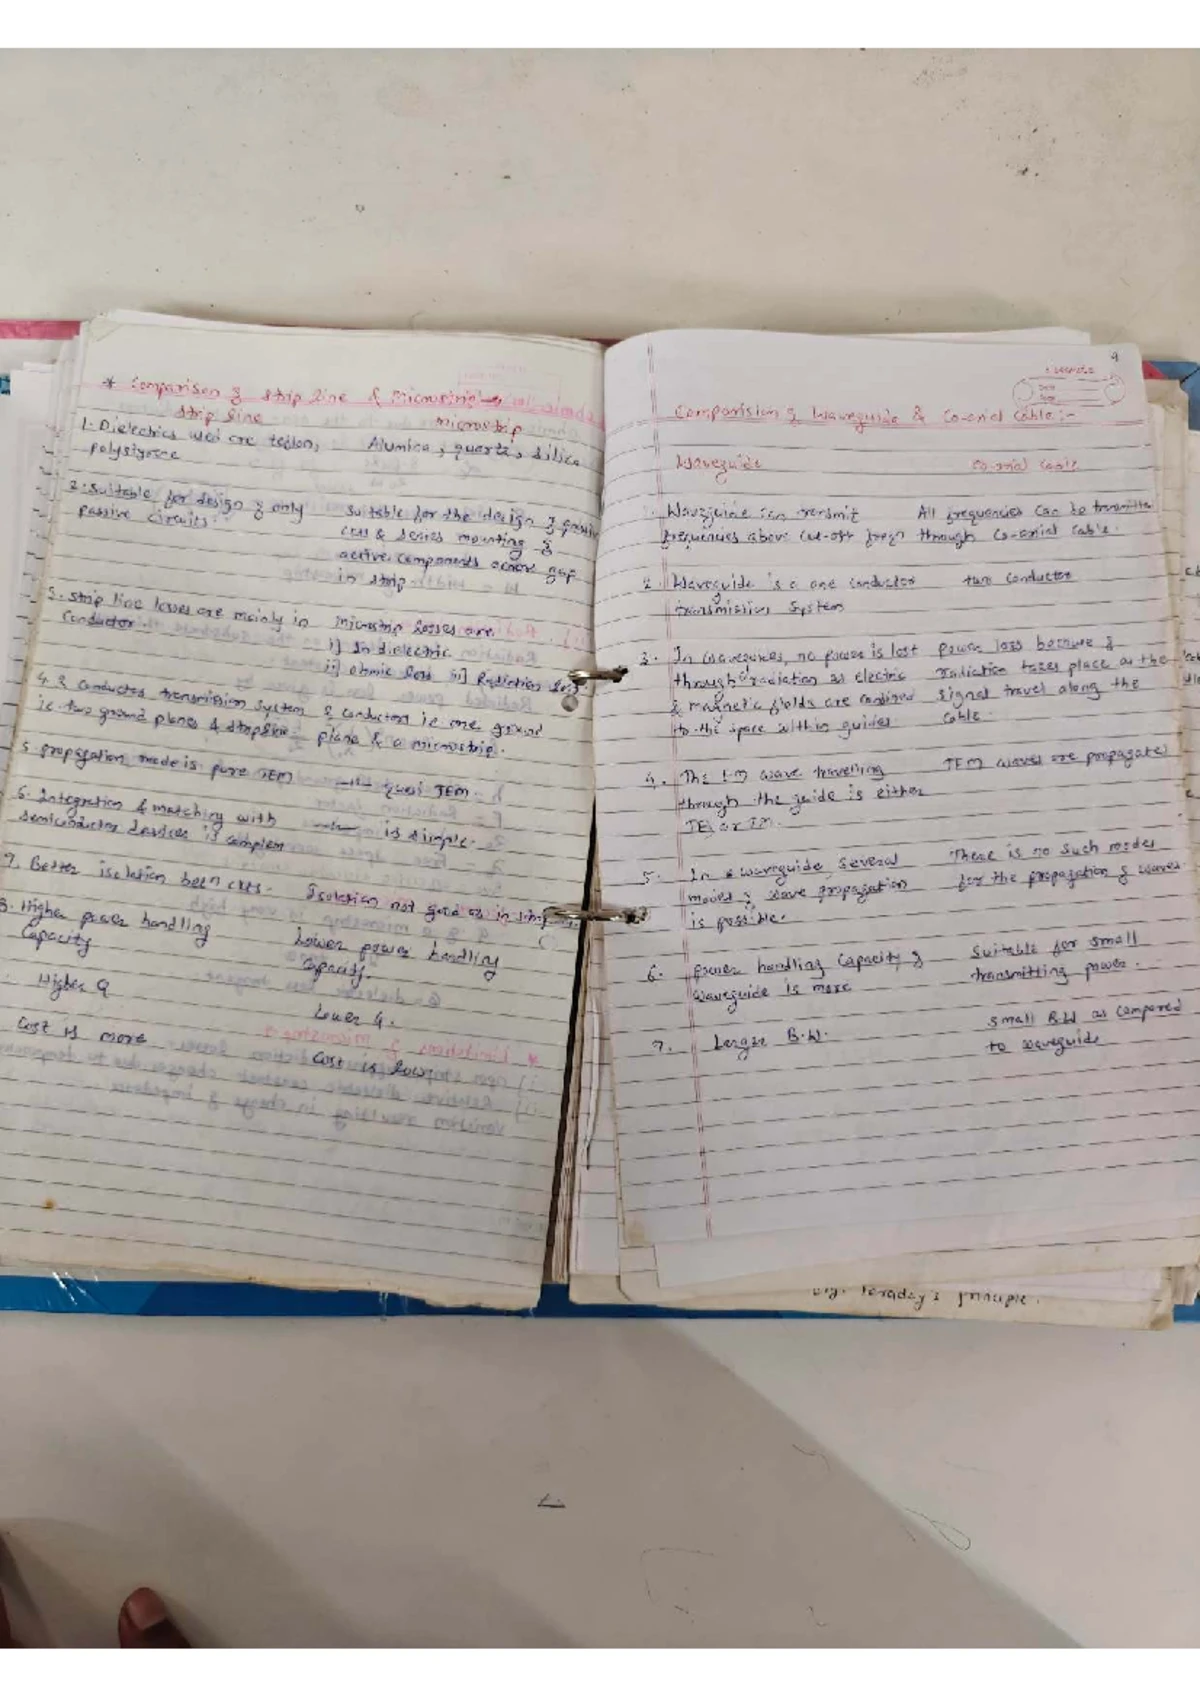 * Comparison of strip line & microstrip
strip line microstrip
1. Dielectrics used are teflon, Alumina, quartz, silica
polystyrene
2. Suitable for design of only suitable for the design of
passive circuits. & series mounting of
active components across gap
in strip
3. strip line losses are mainly in microstrip losses are
conductor i] In dielectric
ii] ohmic loss iii] Radiation loss
4. 2 conductor transmission system 2 conductors ie one ground
ie. two ground planes & stripline. plane & a microstrip.
5. propagation mode is pure TEM —"— quasi TEM
6. Integration & matching with —"— is simple.
semiconductor devices is complex
7. Better isolation betn ckts. Isolation not good as in strip
8. Higher power handling Lower power handling
Capacity capacity.
Higher Q Lower Q.
Cost is more Cost is low
9
Comparision of Waveguide & Co-axial Cable:-
Waveguide Co-axial Cable
Waveguide can transmit All frequencies can be transmitted
frequencies above cut-off freqn through Co-axial Cable.
2. Waveguide is a one conductor two conductor
transmission System
3. In waveguides, no power is lost power loss because of
through radiation as electric radiation takes place as the
& magnetic fields are confined signal travel along the
to the space within guides. cable.
4. The EM wave travelling TEM waves are propagated
through the guide is either
TE or TM.
5. In a waveguide, several There is no such modes
modes of wave propagation for the propagation of waves
is possible.
6. power handling Capacity of Suitable for small
waveguide is more transmitting power.
7. Larger B.W. small B.W as compared
to waveguide
Faraday's principle.